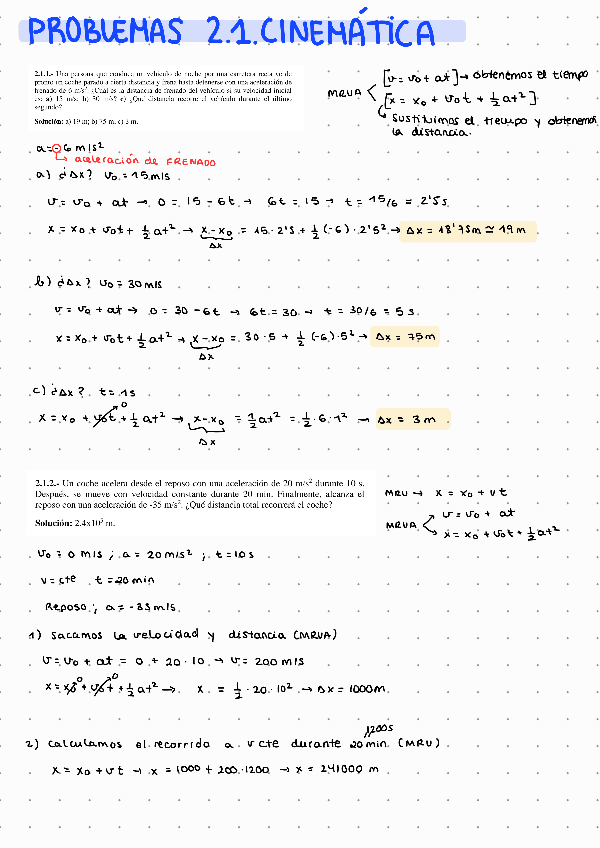 PROBLEMAS 2.1. CINEMÁTICA
2.1.1.- Una persona que conduce un vehículo de noche por una carretera recta ve de
pronto un coche parado a cierta distancia y frena hasta detenerse con una aceleración de
frenado de 6 m/s². ¿Cuál es la distancia de frenado del vehículo si su velocidad inicial
es: a) 15 m/s. b) 30 m/s? c) ¿Qué distancia recorre el vehículo durante el último
segundo?
Solución: a) 19 m; b) 75 m. c) 3 m.
MRUA < [v = v₀ + at] → obtenemos el tiempo
[x = x₀ + v₀t + ½at²]
↳ Sustituimos el tiempo y obtenemos
la distancia.
a = -6 m/s²
↳ aceleración de FRENADO
a) ¿Δx? v₀ = 15 m/s
v = v₀ + at → 0 = 15 - 6t → 6t = 15 → t = 15/6 = 2'5 s
x = x₀ + v₀t + ½at² → x - x₀ = 15 · 2'5 + ½ (-6) · 2'5² → Δx = 18'75m ≃ 19m
Δx
b) ¿Δx? v₀ = 30 m/s
v = v₀ + at → 0 = 30 - 6t → 6t = 30 → t = 30/6 = 5 s.
x = x₀ + v₀t + ½at² → x - x₀ = 30 · 5 + ½ (-6) · 5² → Δx = 75m
Δx
c) ¿Δx? t = 1s
x = x₀ + v₀t + ½at² → x - x₀ = ½at² = ½ · 6 · 1² → Δx = 3m
0
Δx
2.1.2.- Un coche acelera desde el reposo con una aceleración de 20 m/s² durante 10 s.
Después, se mueve con velocidad constante durante 20 min. Finalmente, alcanza el
reposo con una aceleración de -35 m/s². ¿Qué distancia total recorrerá el coche?
Solución: 2.4x10⁵ m.
MRU → x = x₀ + vt
MRUA < v = v₀ + at
x = x₀ + v₀t + ½at²
v₀ = 0 m/s ; a = 20 m/s² ; t = 10 s
v = cte t = 20 min
Reposo ; a = -35 m/s.
1) Sacamos la velocidad y distancia (MRUA)
v = v₀ + at = 0 + 20 · 10 → v = 200 m/s
x = x₀ + v₀t + ½at² → x = ½ · 20 · 10² → Δx = 1000m.
0 0
1200s
2) Calculamos el recorrido a v cte durante 20 min. (MRU)
x = x₀ + vt → x = 1000 + 200 · 1200 → x = 241000 m